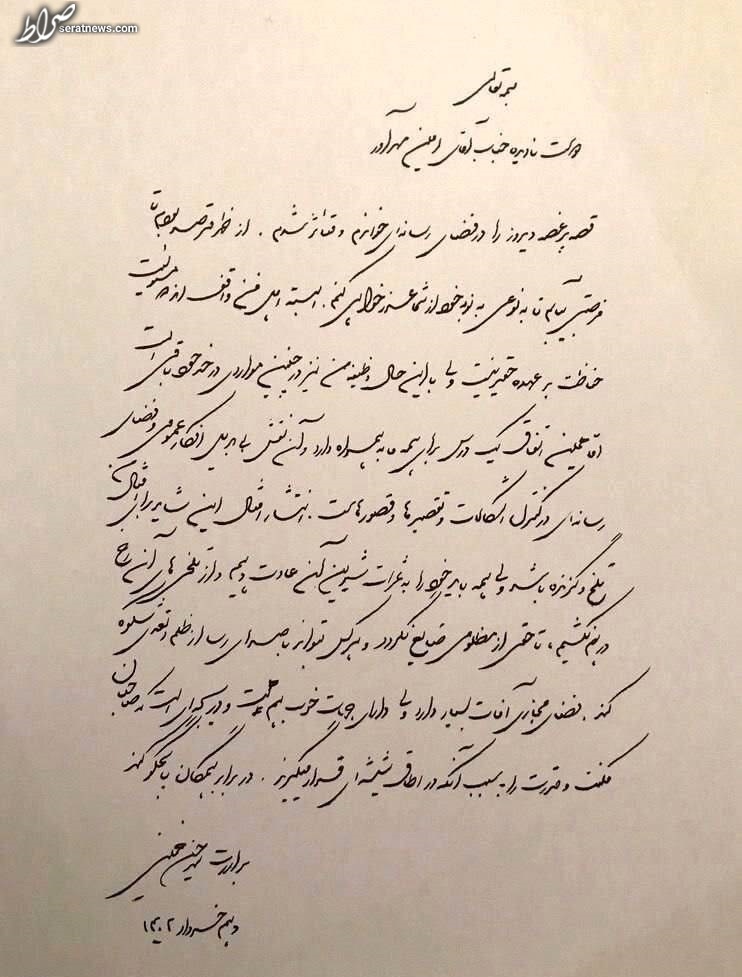 صراط
seratnews.com
بسمه تعالی
دوست نادیده جناب آقای امین مهرآور
قصه پرغصه دیروز را در فضای رسانه‌ای خواندم و متأثر شدم. از خدا فرصت
فرصتی بیابم تا به نوعی به نوبه خود از شما عذرخواهی کنم. البته اهل فن واقف اند مسئولیت
حفاظت بر عهده حقیر نیست ولی با این حال وظیفه من نیز در چنین مواردی در حد خود باقی است
اما همین اتفاق یک درس برای همه ما به همراه دارد و آن نقش بی بدیل افکار عمومی و فضای
رسانه‌ای در کنترل اشکالات و تقصیرها و قصورهاست. انتشار امثال این شاید برای امثال ما
تلخ و گزنده باشد ولی همه باید خود را به ثمرات شیرین آن عادت دهیم و از تلخی های آن رخ
درهم نکشیم، تا حقی از مظلومی ضایع نگردد و هرکس بتواند با صدای رسا از ظلم و تعدی شکوه
کند. فضای مجازی آفات بسیار دارد ولی دارای جهات خوب هم هست و دریچه‌ای است که صاحبان
مکنت و قدرت را به سبب آنکه در اطاق شیشه‌ای قرار میگیرند. در برابر همگان پاسخگو کند
برادرت سید حسن خمینی
دهم خرداد ۱۴۰۲